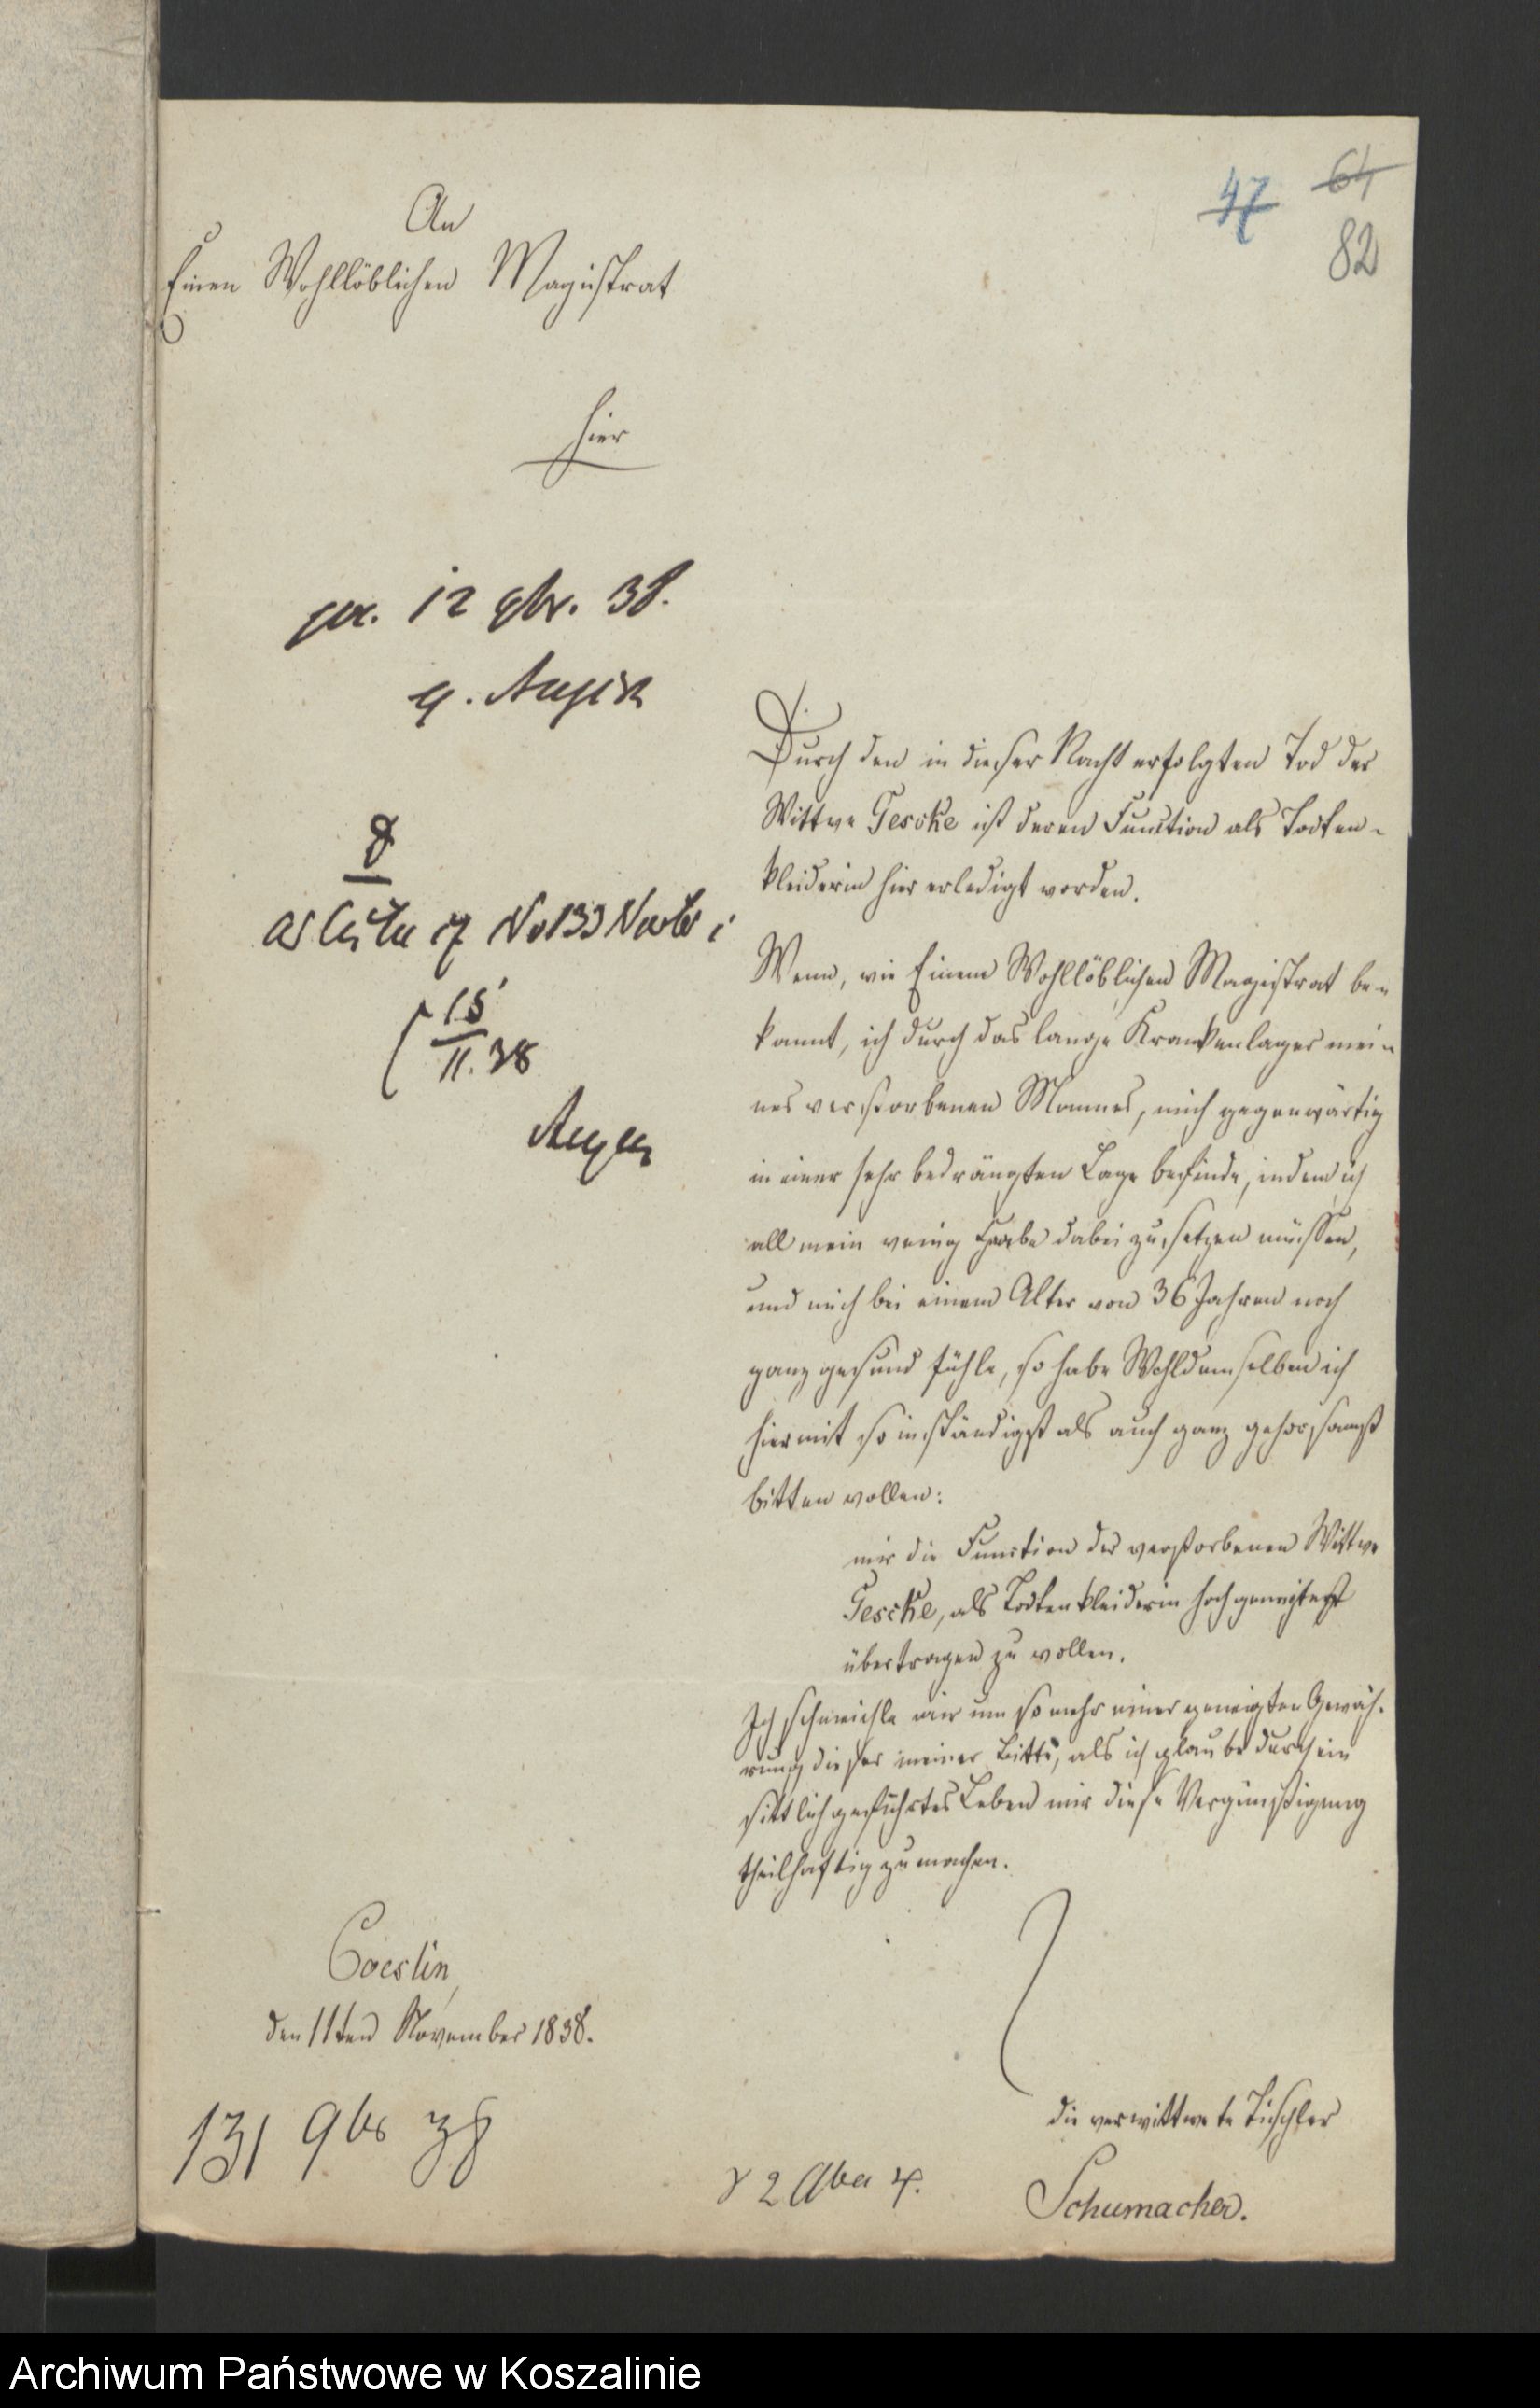 47 64
82
An
Einen Wohllöblichen Magistrat
hier
pr. 12 9br. 38.
8
No 133 Novbr
15
11. 38
Durch den in dieser Nacht erfolgten Tod der
Wittwe Gescke ist deren Function als Todten-
kleiderin hier erledigt worden.
Wenn, wie Einem Wohllöblichen Magistrat be-
kannt, ich durch das lange Krankenlager mei-
nes verstorbenen Mannes, mich gegenwärtig
in einer sehr bedrängten Lage befinde, indem ich
all mein wenig Haabe dabei zusetzen müssen,
und mich bei einem Alter von 36 Jahren noch
ganz gesund fühle, so habe Wohldemselben ich
hiermit so inständigst als auch ganz gehorsamst
bitten wollen:
mir die Function der verstorbenen Wittwe
Gescke, als Todtenkleiderin hochgeneigtest
übertragen zu wollen.
Ich schmeichle mir um so mehr einer geneigten Gewäh-
rung dieser meiner Bitte, als ich glaube durch ein
sittlich geführtes Leben mir diese Vergünstigung
theilhaftig zu machen.
Coeslin,
den 11ten November 1838.
die verwittwete Tischler
Schumacher.
131 9br 38
Archiwum Państwowe w Koszalinie